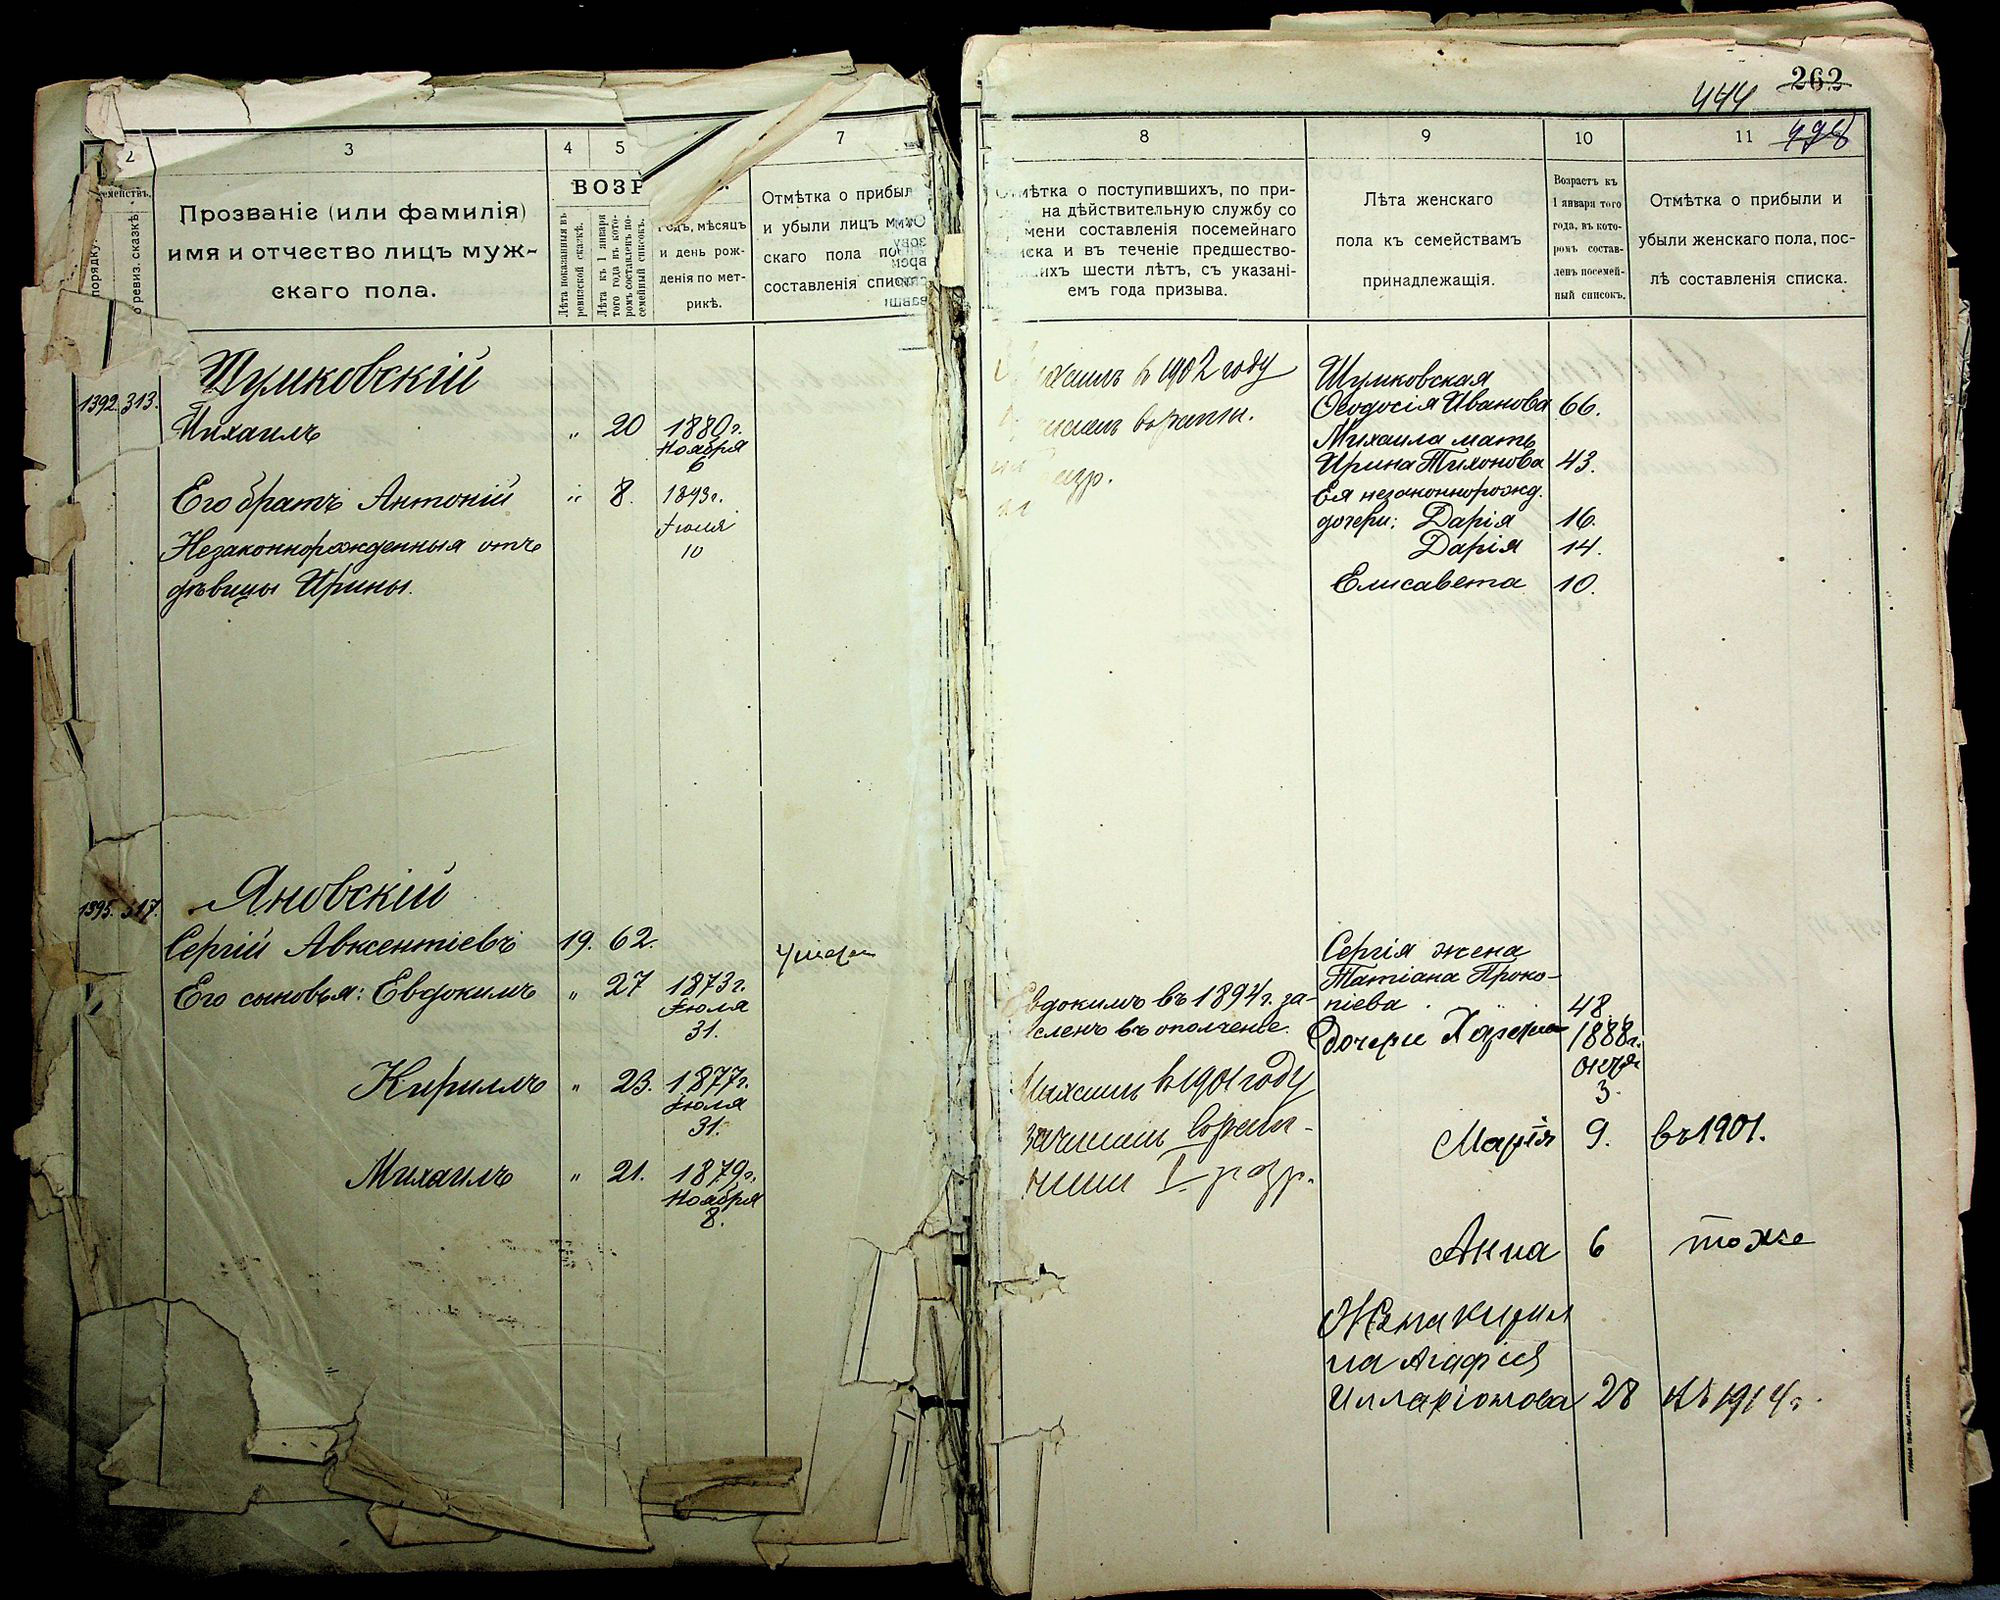 262
444
498
2
3
4
5
7
семействъ.
порядку.
о ревиз. сказкѣ.
Прозваніе (или фамилія)
имя и отчество лицъ муж-
скаго пола.
ВОЗР
Лѣта показанныя въ
ревизской сказкѣ.
Лѣта къ 1 января
того года въ кото-
ромъ составленъ по-
семейный списокъ.
годъ, мѣсяцъ
и день рож-
денія по мет-
рикѣ.
Отмѣтка о прибыл
и убыли лицъ
скаго пола
составленія списка
8
9
10
11
Отмѣтка о поступившихъ, по при-
на дѣйствительную службу со
мени составленія посемейнаго
иска и въ теченіе предшество-
ихъ шести лѣтъ, съ указані-
емъ года призыва.
Лѣта женскаго
пола къ семействамъ
принадлежащія.
Возрастъ къ
1 января того
года, въ кото-
ромъ состав-
ленъ посемей-
ный списокъ.
Отмѣтка о прибыли и
убыли женскаго пола, пос-
лѣ составленія списка.
1392. 313.
Шумковскій
Михаилъ " 20 1880 г.
Ноября
6
Его братъ Антоній " 8. 1893 г.
Іюля
10
Незаконнорожденныя отъ
дѣвицы Ирины.
Михаилъ въ 1902 году
разр.
Шумковская
Ѳеодосія Иванова 66.
Михаила мать
Ирина Тихонова 43.
Ея незаконнорожд.
дочери: Дарія 16.
Дарія 14.
Елисавета 10.
1395. 317.
Яновскій
Сергій Авксентіевъ 19. 62.
Его сыновья: Евдокимъ " 27 1873 г.
Іюля
31.
Кириллъ " 23. 1877 г.
Іюля
31.
Михаилъ " 21. 1879 г.
Ноября
8.
Умеръ
Евдокимъ въ 1894 г. за-
сленъ въ ополченіе.
Михаилъ въ 1901 году
зачисленъ въ ратн-
ники I разр.
Сергія жена
Татіана Проко-
піева 48.
дочери 1888 г.
3.
Марія 9. въ 1901.
Анна 6 тоже
Жена Кирил
ла Агафія
Илларіонова 28 въ 1914 г.